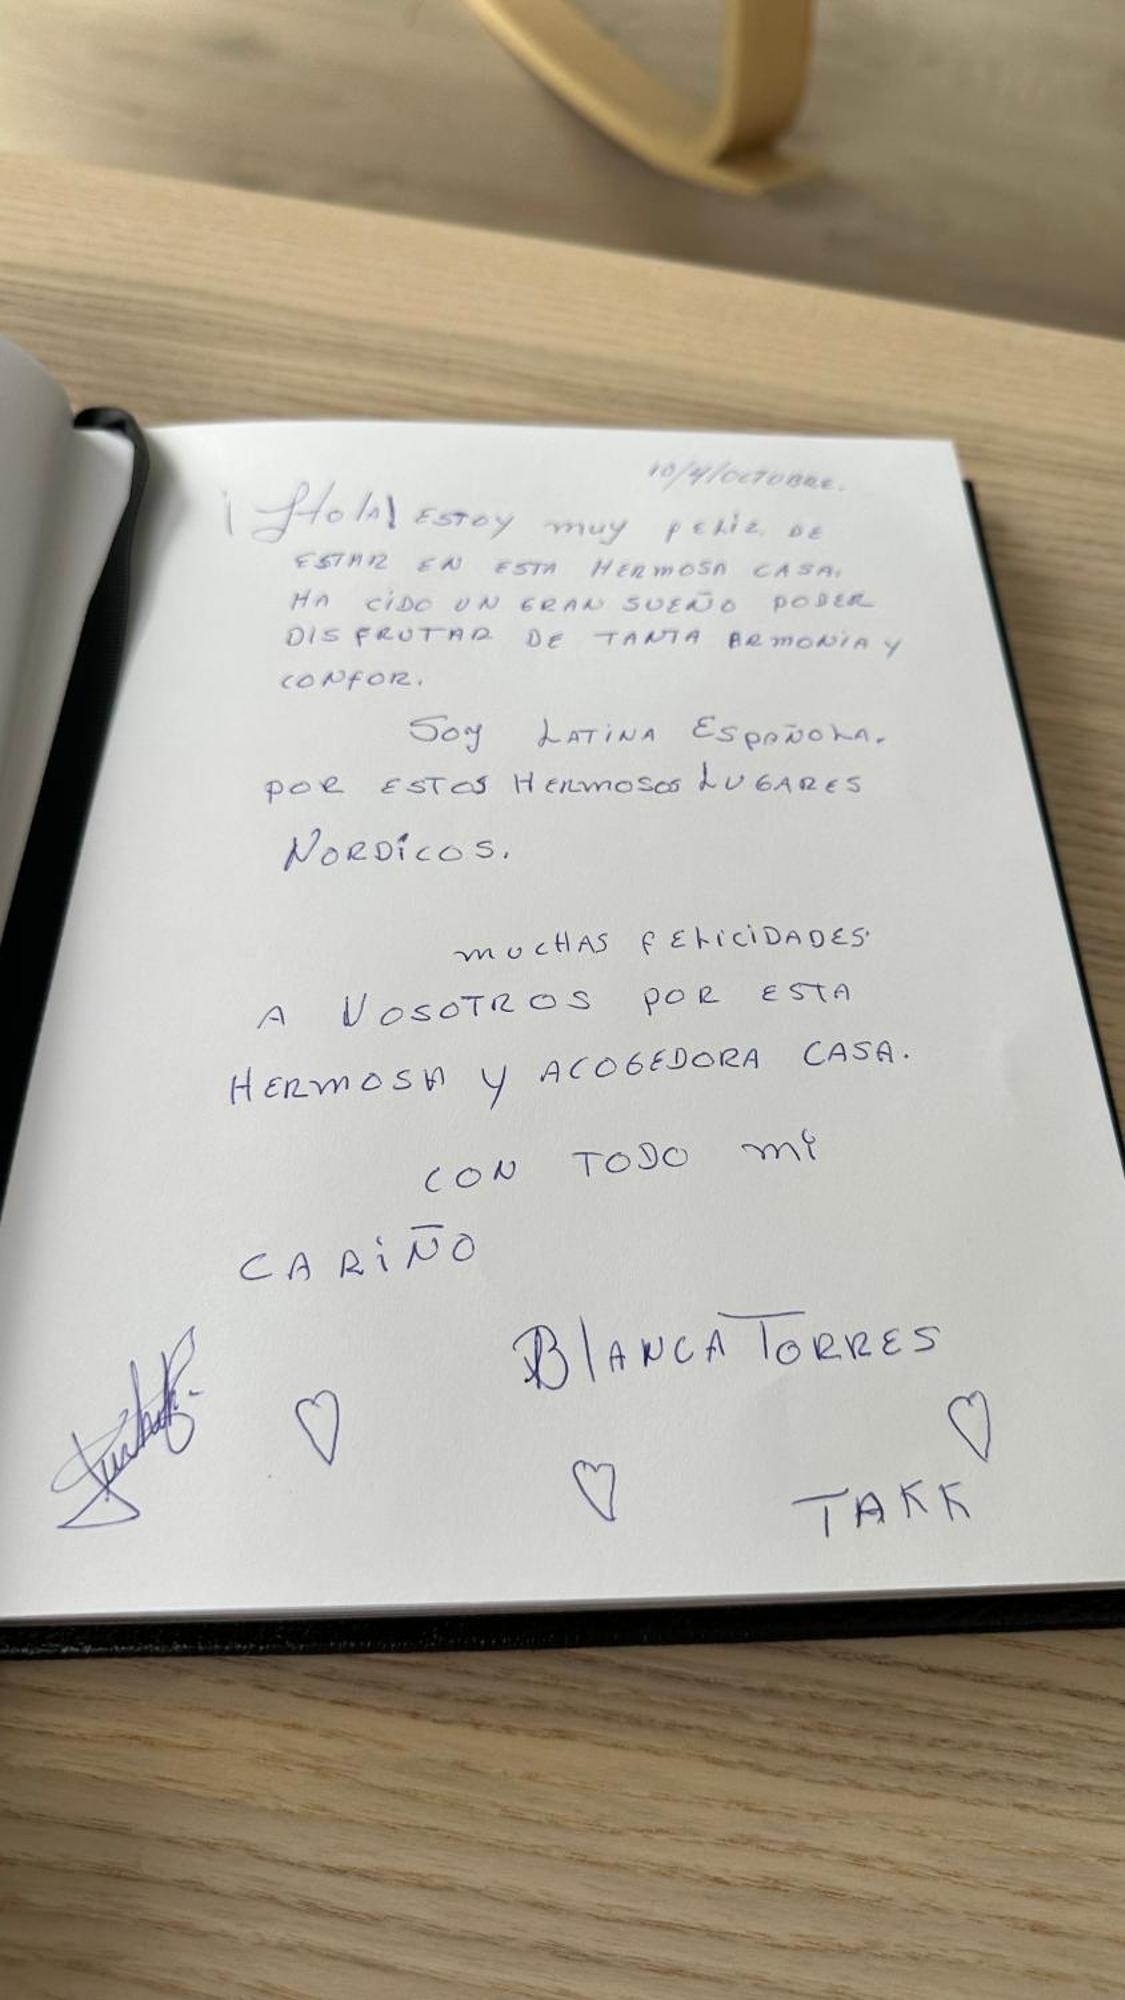 10/4/OCTUBRE.
¡Hola! ESTOY muy FELIZ DE
ESTAR EN ESTA HERMOSA CASA.
HA CIDO UN GRAN SUEÑO PODER
DISFRUTAR DE TANTA ARMONIA Y
CONFOR.
Soy LATINA ESPAÑOLA.
POR ESTOS HERMOSOS LUGARES
NORDICOS.
MUCHAS FELICIDADES
A NOSOTROS POR ESTA
HERMOSA Y ACOGEDORA CASA.
CON TODO mi
CARIÑO
BLANCA TORRES
TAKK